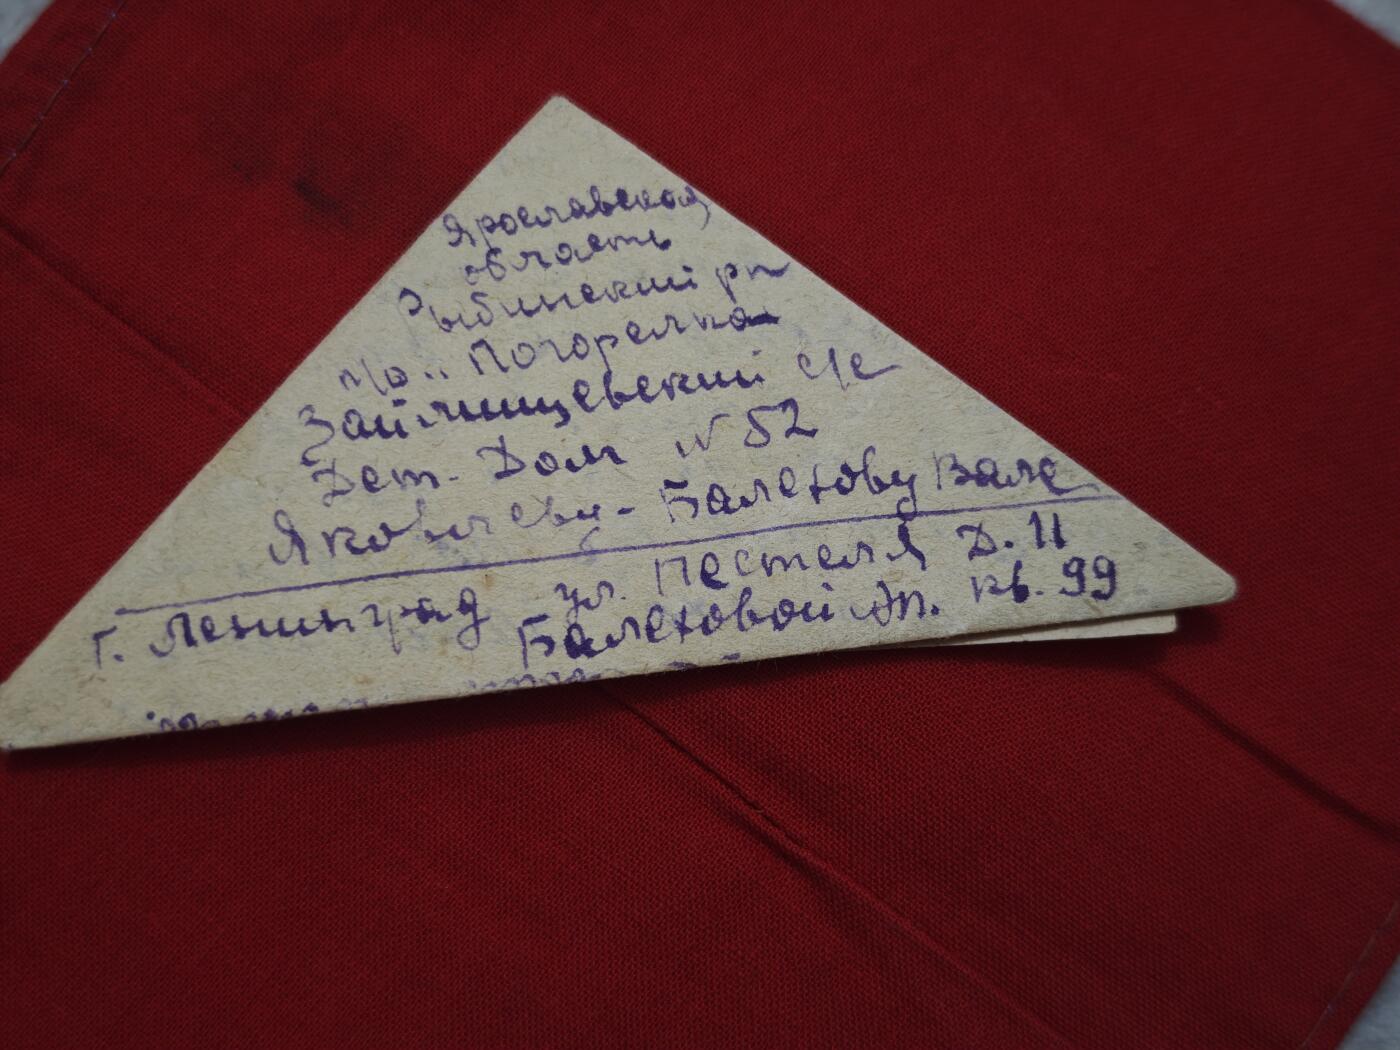 Ярославская
область
Рыбинский рн
п/о.. Погорелка
Займищевский с/с
Дет. Дом № 52
Яковлеву - Балехову Вале
г. Ленинград ул. Пестеля Д. 11
Балеховой кв. 99